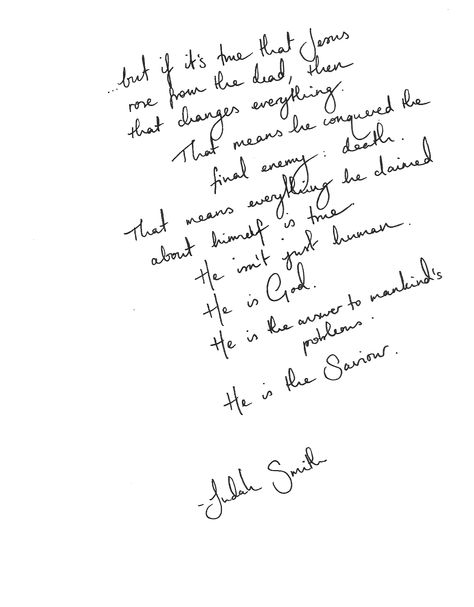 ...but if it's true that Jesus
rose from the dead, then
that changes everything.
That means he conquered the
final enemy: death.
That means everything he claimed
about himself is true.
He isn't just human.
He is God.
He is the answer to mankind's
problems.
He is the Saviour.
-Judah Smith